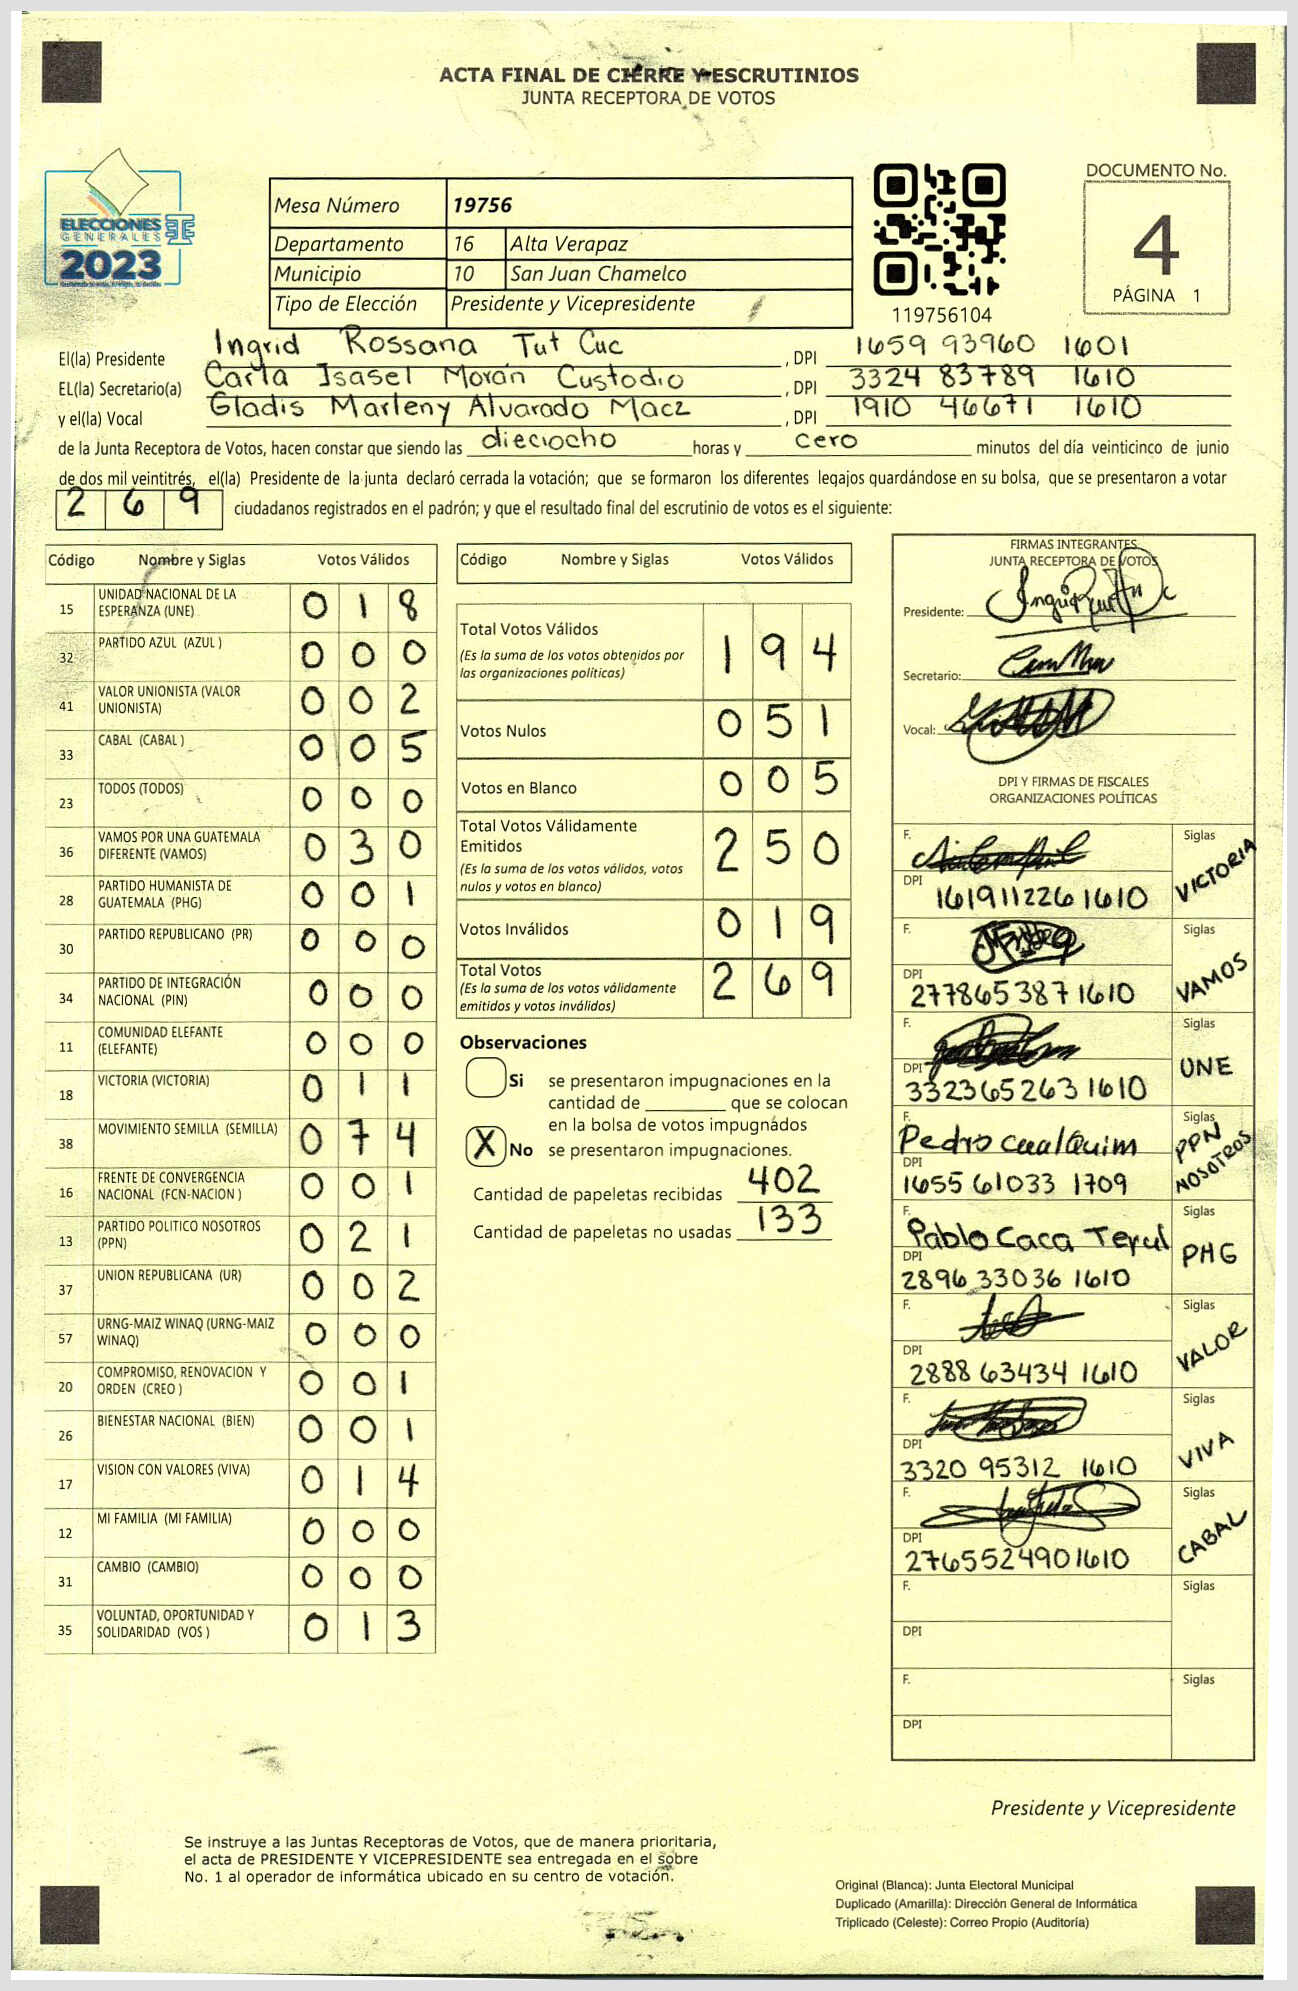 ACTA FINAL DE CIERRE Y ESCRUTINIOS
JUNTA RECEPTORA DE VOTOS
ELECCIONES
GENERALES
2023
Mesa Número 19756
Departamento 16 Alta Verapaz
Municipio 10 San Juan Chamelco
Tipo de Elección Presidente y Vicepresidente
119756104
DOCUMENTO No.
4
PÁGINA 1
El(la) Presidente Ingrid Rossana Tut Cuc , DPI 1659 93960 1601
EL(la) Secretario(a) Carla Isasel Morán Custodio , DPI 3324 83789 1610
y el(la) Vocal Gladis Marleny Alvarado Macz , DPI 1910 46671 1610
de la Junta Receptora de Votos, hacen constar que siendo las dieciocho horas y cero minutos del día veinticinco de junio
de dos mil veintitrés, el(la) Presidente de la junta declaró cerrada la votación; que se formaron los diferentes legajos guardándose en su bolsa, que se presentaron a votar
2 6 9 ciudadanos registrados en el padrón; y que el resultado final del escrutinio de votos es el siguiente:
Código Nombre y Siglas Votos Válidos
15 UNIDAD NACIONAL DE LA ESPERANZA (UNE) 0 1 8
32 PARTIDO AZUL (AZUL ) 0 0 0
41 VALOR UNIONISTA (VALOR UNIONISTA) 0 0 2
33 CABAL (CABAL ) 0 0 5
23 TODOS (TODOS) 0 0 0
36 VAMOS POR UNA GUATEMALA DIFERENTE (VAMOS) 0 3 0
28 PARTIDO HUMANISTA DE GUATEMALA (PHG) 0 0 1
30 PARTIDO REPUBLICANO (PR) 0 0 0
34 PARTIDO DE INTEGRACIÓN NACIONAL (PIN) 0 0 0
11 COMUNIDAD ELEFANTE (ELEFANTE) 0 0 0
18 VICTORIA (VICTORIA) 0 1 1
38 MOVIMIENTO SEMILLA (SEMILLA) 0 7 4
16 FRENTE DE CONVERGENCIA NACIONAL (FCN-NACION ) 0 0 1
13 PARTIDO POLITICO NOSOTROS (PPN) 0 2 1
37 UNION REPUBLICANA (UR) 0 0 2
57 URNG-MAIZ WINAQ (URNG-MAIZ WINAQ) 0 0 0
20 COMPROMISO, RENOVACION Y ORDEN (CREO ) 0 0 1
26 BIENESTAR NACIONAL (BIEN) 0 0 1
17 VISION CON VALORES (VIVA) 0 1 4
12 MI FAMILIA (MI FAMILIA) 0 0 0
31 CAMBIO (CAMBIO) 0 0 0
35 VOLUNTAD, OPORTUNIDAD Y SOLIDARIDAD (VOS ) 0 1 3
Código Nombre y Siglas Votos Válidos
Total Votos Válidos 1 9 4
(Es la suma de los votos obtenidos por
las organizaciones políticas)
Votos Nulos 0 5 1
Votos en Blanco 0 0 5
Total Votos Válidamente
Emitidos 2 5 0
(Es la suma de los votos válidos, votos
nulos y votos en blanco)
Votos Inválidos 0 1 9
Total Votos 2 6 9
(Es la suma de los votos válidamente
emitidos y votos inválidos)
Observaciones
Si se presentaron impugnaciones en la
cantidad de ________ que se colocan
en la bolsa de votos impugnados
X No se presentaron impugnaciones.
Cantidad de papeletas recibidas 402
Cantidad de papeletas no usadas 133
FIRMAS INTEGRANTES
JUNTA RECEPTORA DE VOTOS
Presidente:
Secretario:
Vocal:
DPI Y FIRMAS DE FISCALES
ORGANIZACIONES POLÍTICAS
F. Siglas VICTORIA
DPI 1619112261610
F. Siglas VAMOS
DPI 2778653871610
F. Siglas UNE
DPI 3323652631610
F. Pedro Cualquim Siglas PPN NOSOTROS
DPI 1655 61033 1709
F. Pablo Caca Siglas PHG
DPI 2896 33036 1610
F. Siglas VALOR
DPI 2888 63434 1610
F. Siglas VIVA
DPI 3320 95312 1610
F. Siglas CABAL
DPI 2765524901610
F. Siglas
DPI
F. Siglas
DPI
Presidente y Vicepresidente
Se instruye a las Juntas Receptoras de Votos, que de manera prioritaria,
el acta de PRESIDENTE Y VICEPRESIDENTE sea entregada en el sobre
No. 1 al operador de informática ubicado en su centro de votación.
Original (Blanca): Junta Electoral Municipal
Duplicado (Amarilla): Dirección General de Informática
Triplicado (Celeste): Correo Propio (Auditoría)